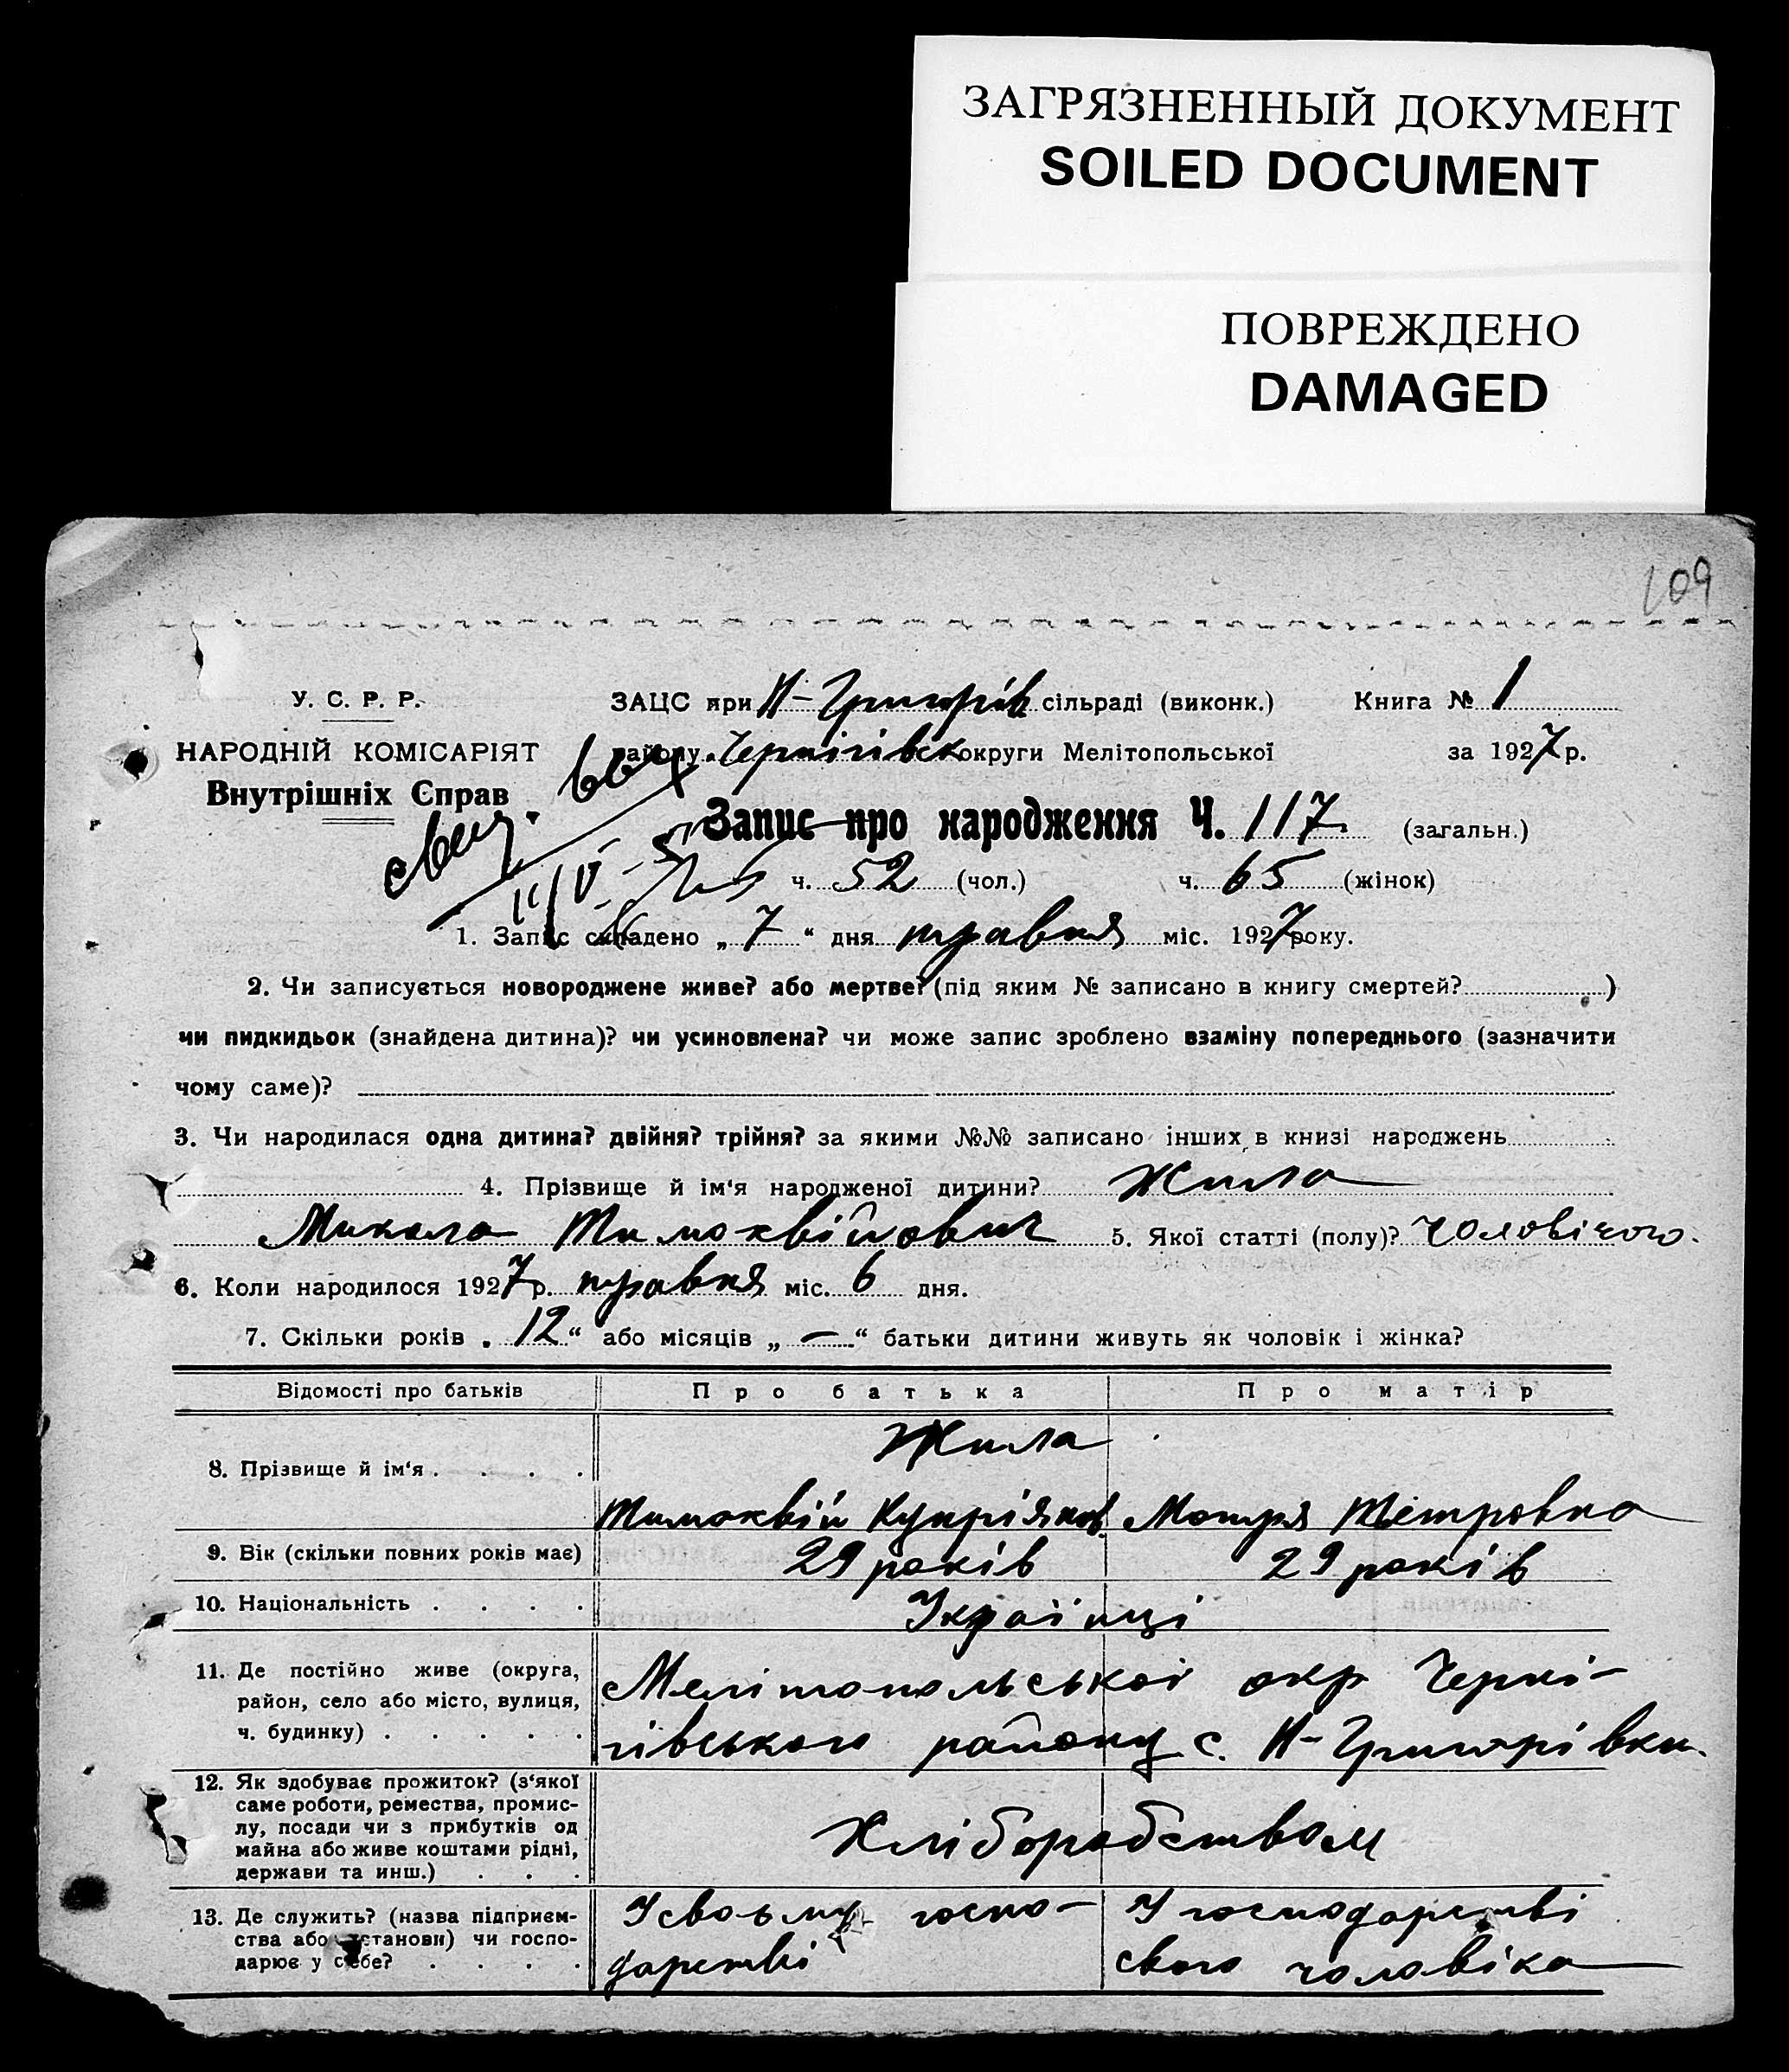 ЗАГРЯЗНЕННЫЙ ДОКУМЕНТ
SOILED DOCUMENT
ПОВРЕЖДЕНО
DAMAGED
109
У. С. Р. Р. ЗАЦС при Н-Григорів сільраді (виконк.) Книга № 1
НАРОДНІЙ КОМІСАРІЯТ району Чернігівск округи Мелітопольської за 1927 р.
Внутрішніх Справ
Запис про народження Ч. 117 (загальн.)
ч. 52 (чол.) ч. 65 (жінок)
1. Запис складено „ 7 “ дня травня міс. 1927 року.
2. Чи записується новороджене живе? або мертве? (під яким № записано в книгу смертей? )
чи пидкидьок (знайдена дитина)? чи усиновлена? чи може запис зроблено взаміну попереднього (зазначити
чому саме)?
3. Чи народилася одна дитина? двійня? трійня? за якими №№ записано інших в книзі народжень
4. Прізвище й ім'я народженої дитини? Жила
Микола Тимоквійович 5. Якої статті (полу)? Чоловічого.
6. Коли народилося 1927 р. травня міс. 6 дня.
7. Скільки років „ 12 “ або місяців „ — “ батьки дитини живуть як чоловік і жінка?
Відомості про батьків Про батька Про матір
Жила
8. Прізвище й ім'я . . . .
Тимоквій Купріянов. Мотря Петровна
9. Вік (скільки повних років має) 29 років 29 років
10. Національність . . . . Українці
11. Де постійно живе (округа, Мелітопольської окр Черні-
район, село або місто, вулиця,
ч. будинку) . . . . . гівського району с. Н-Григорівки.
12. Як здобуває прожиток? (з'якої
саме роботи, ремества, промис-
лу, посади чи з прибутків од
майна або живе коштами рідні, Хліборобством
держави та инш.) . . .
13. Де служить? (назва підприєм- У своьму госпо- У господарстві
ства або установи) чи госпо-
дарює у себе? . . . . дарстві свого чоловіка